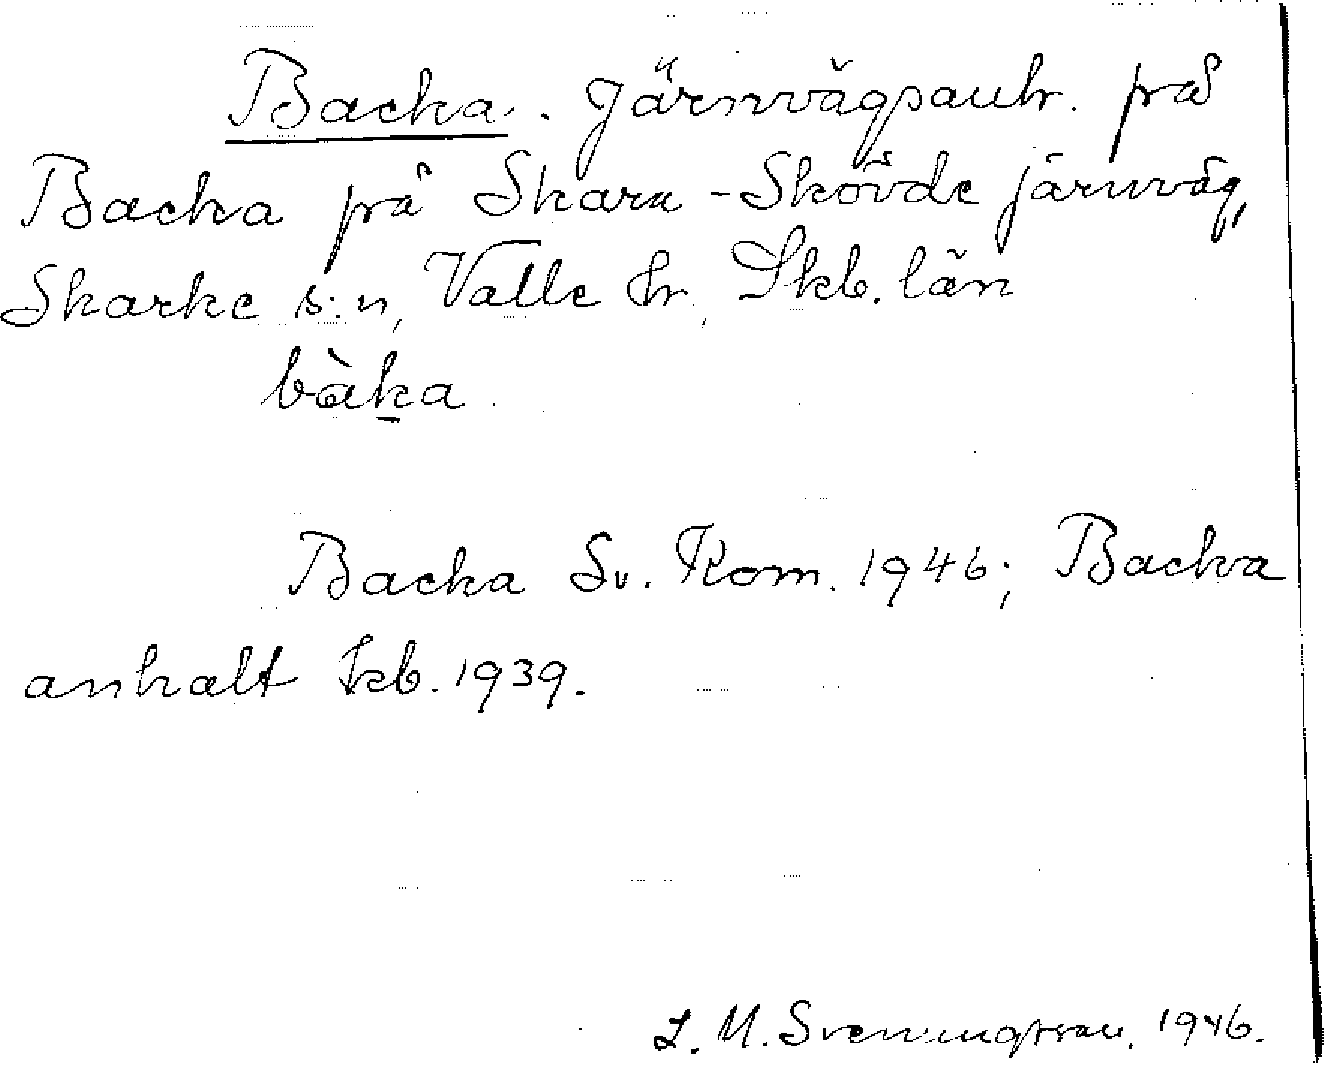 Backa. Järnvägsanh. på
Backa på Skara-Skövde järnväg,
Skarke s:n, Valle hr, Skb. län
bàka
Backa Sv. Kom. 1946; Backa
anhalt kb. 1939.
L. M. Svenungsson. 1946.